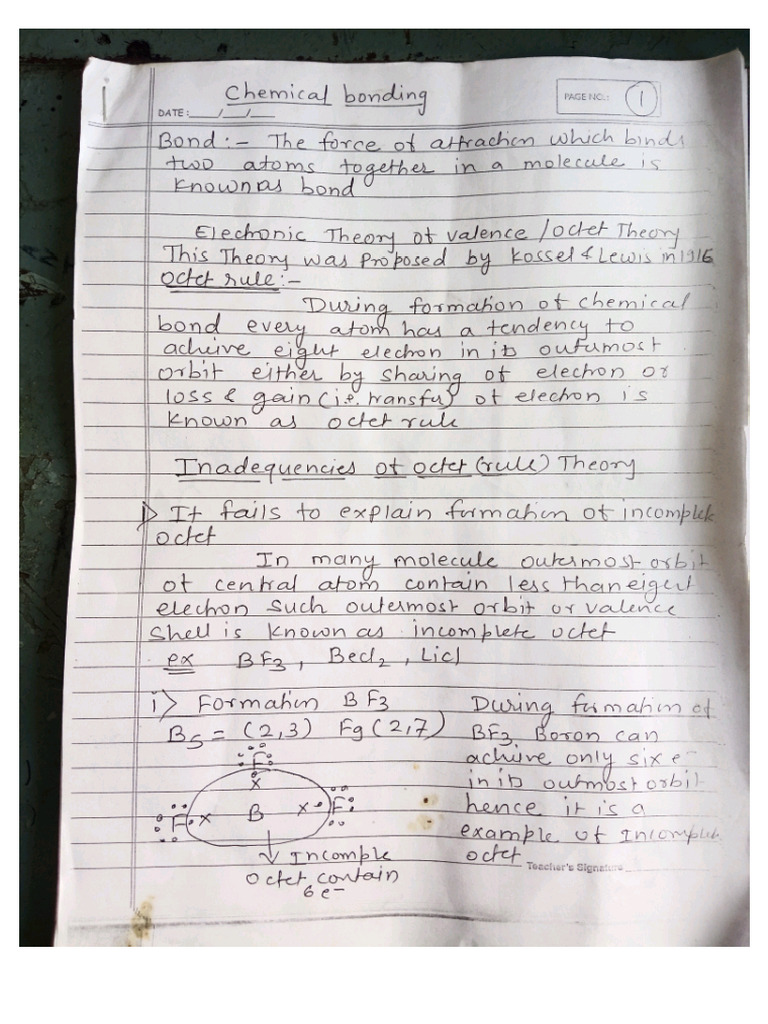 Chemical bonding
DATE:___/___/___
PAGE NO.: 1
Bond :- The force of attraction which binds
two atoms together in a molecule is
known as bond
Electronic Theory of valence / octet Theory
This Theory was proposed by Kossel & Lewis in 1916
Octet rule :-
During formation of chemical
bond every atom has a tendency to
achieve eight electron in its outermost
orbit either by sharing of electron or
loss & gain (i.e. transfer) of electron is
known as octet rule
Inadequencies of octet (rule) Theory
1> It fails to explain formation of incomplete
octet
In many molecule outermost orbit
of central atom contain less than eight
electron such outermost orbit or valence
shell is known as incomplete octet
ex BF3, Becl2, Licl
i> Formation BF3
B5 = (2,3) F9 (2,7)
F
x
F x B x F
Incomple
Octet contain
6 e-
During formation of
BF3 Boron can
achive only six e-
in its outmost orbit
hence it is a
example of Incomplete
octet
Teacher's Signature